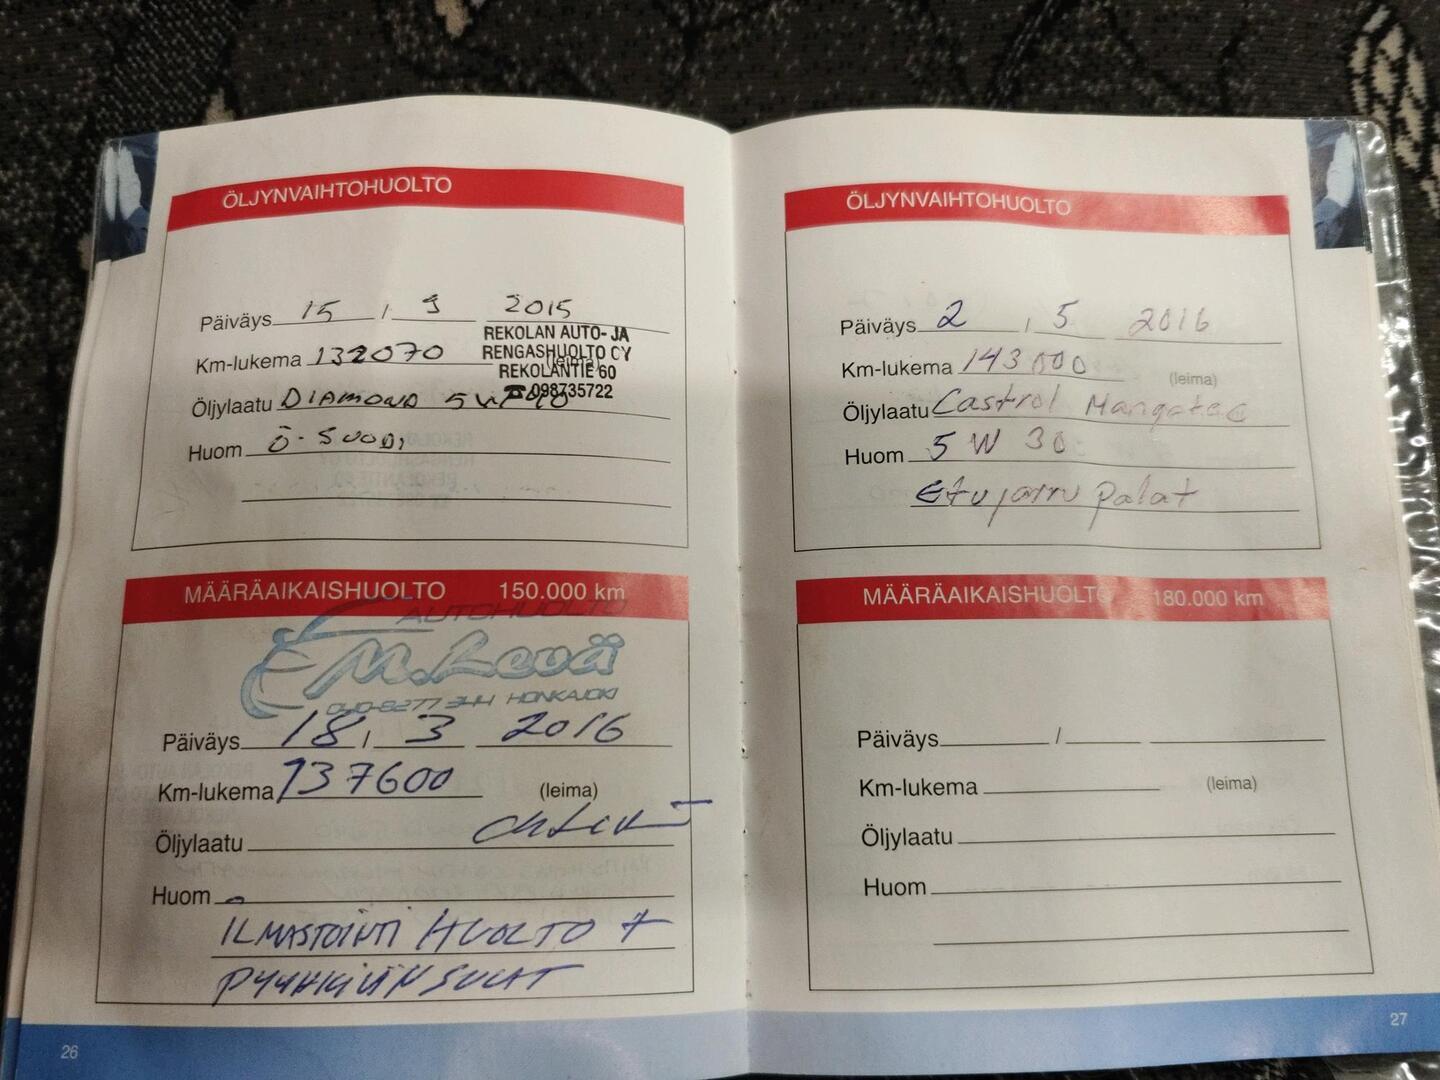 ÖLJYNVAIHTOHUOLTO
Päiväys 15 / 9 2015
REKOLAN AUTO- JA
Km-lukema 132070 (leima)
RENGASHUOLTO CY
REKOLANTIE 60
Öljylaatu DIAMOND 5W40
☎ 098735722
Huom Ö-SUOD,
MÄÄRÄAIKAISHUOLTO 150.000 km
AUTOHUOLTO
M.Levä
040-8277 344 HONKAJOKI
Päiväys 18 / 3 2016
Km-lukema 137600 (leima)
Öljylaatu
Huom
ILMASTOINTI HUOLTO +
PYYHKIJÄN SULAT
26
ÖLJYNVAIHTOHUOLTO
Päiväys 2 / 5 2016
Km-lukema 143000 (leima)
Öljylaatu Castrol Mangatec
Huom 5 W 30
Etujarru palat
MÄÄRÄAIKAISHUOLTO 180.000 km
Päiväys /
Km-lukema (leima)
Öljylaatu
Huom
27